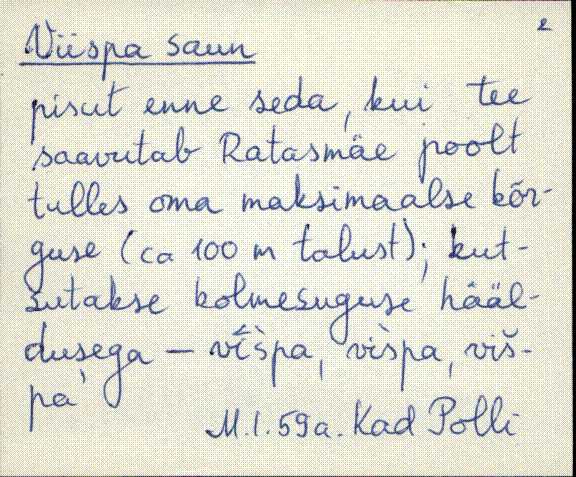 2
Viispa saun
pisut enne seda, kui tee
saavutab Ratasmäe poolt
tulles oma maksimaalse kõr-
guse (ca 100 m talust); kut-
sutakse kolmesuguse hääl-
dusega – vi̬i̬spa, vìspa, viš-
pa'
M. l. 59 a. Kad Polli